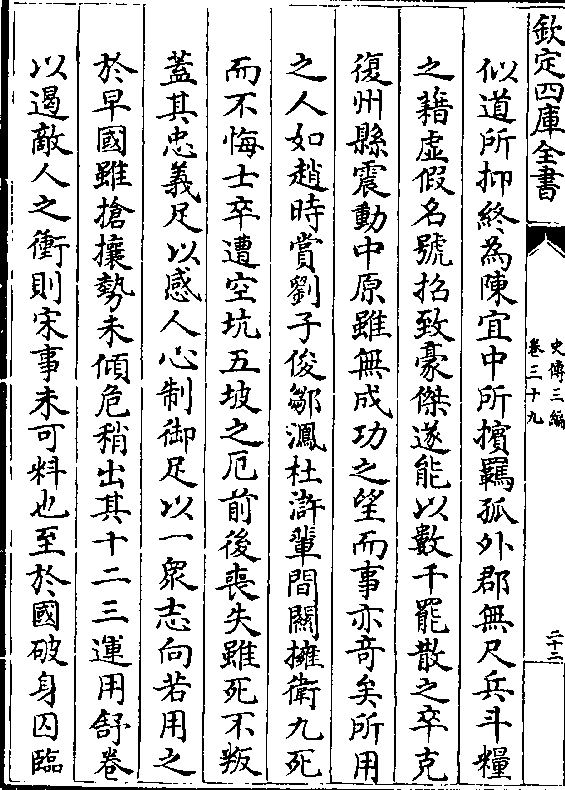 欽定四庫全書
史傳三編
卷三十九
二十二
似道所抑終為陳宜中所擯羈孤外郡無尺兵斗糧
之藉虛假名號招致豪傑遂能以數千罷散之卒克
復州縣震動中原雖無成功之望而事亦奇矣所用
之人如趙時賞劉子俊鄒㵯杜滸輩間關擁衛九死
而不悔士卒遭空坑五坡之厄前後喪失雖死不叛
蓋其忠義足以感人心制御足以一衆志向若用之
於早國雖搶攘勢未傾危稍出其十二三運用舒卷
以遏敵人之衝則宋事未可料也至於國破身囚臨